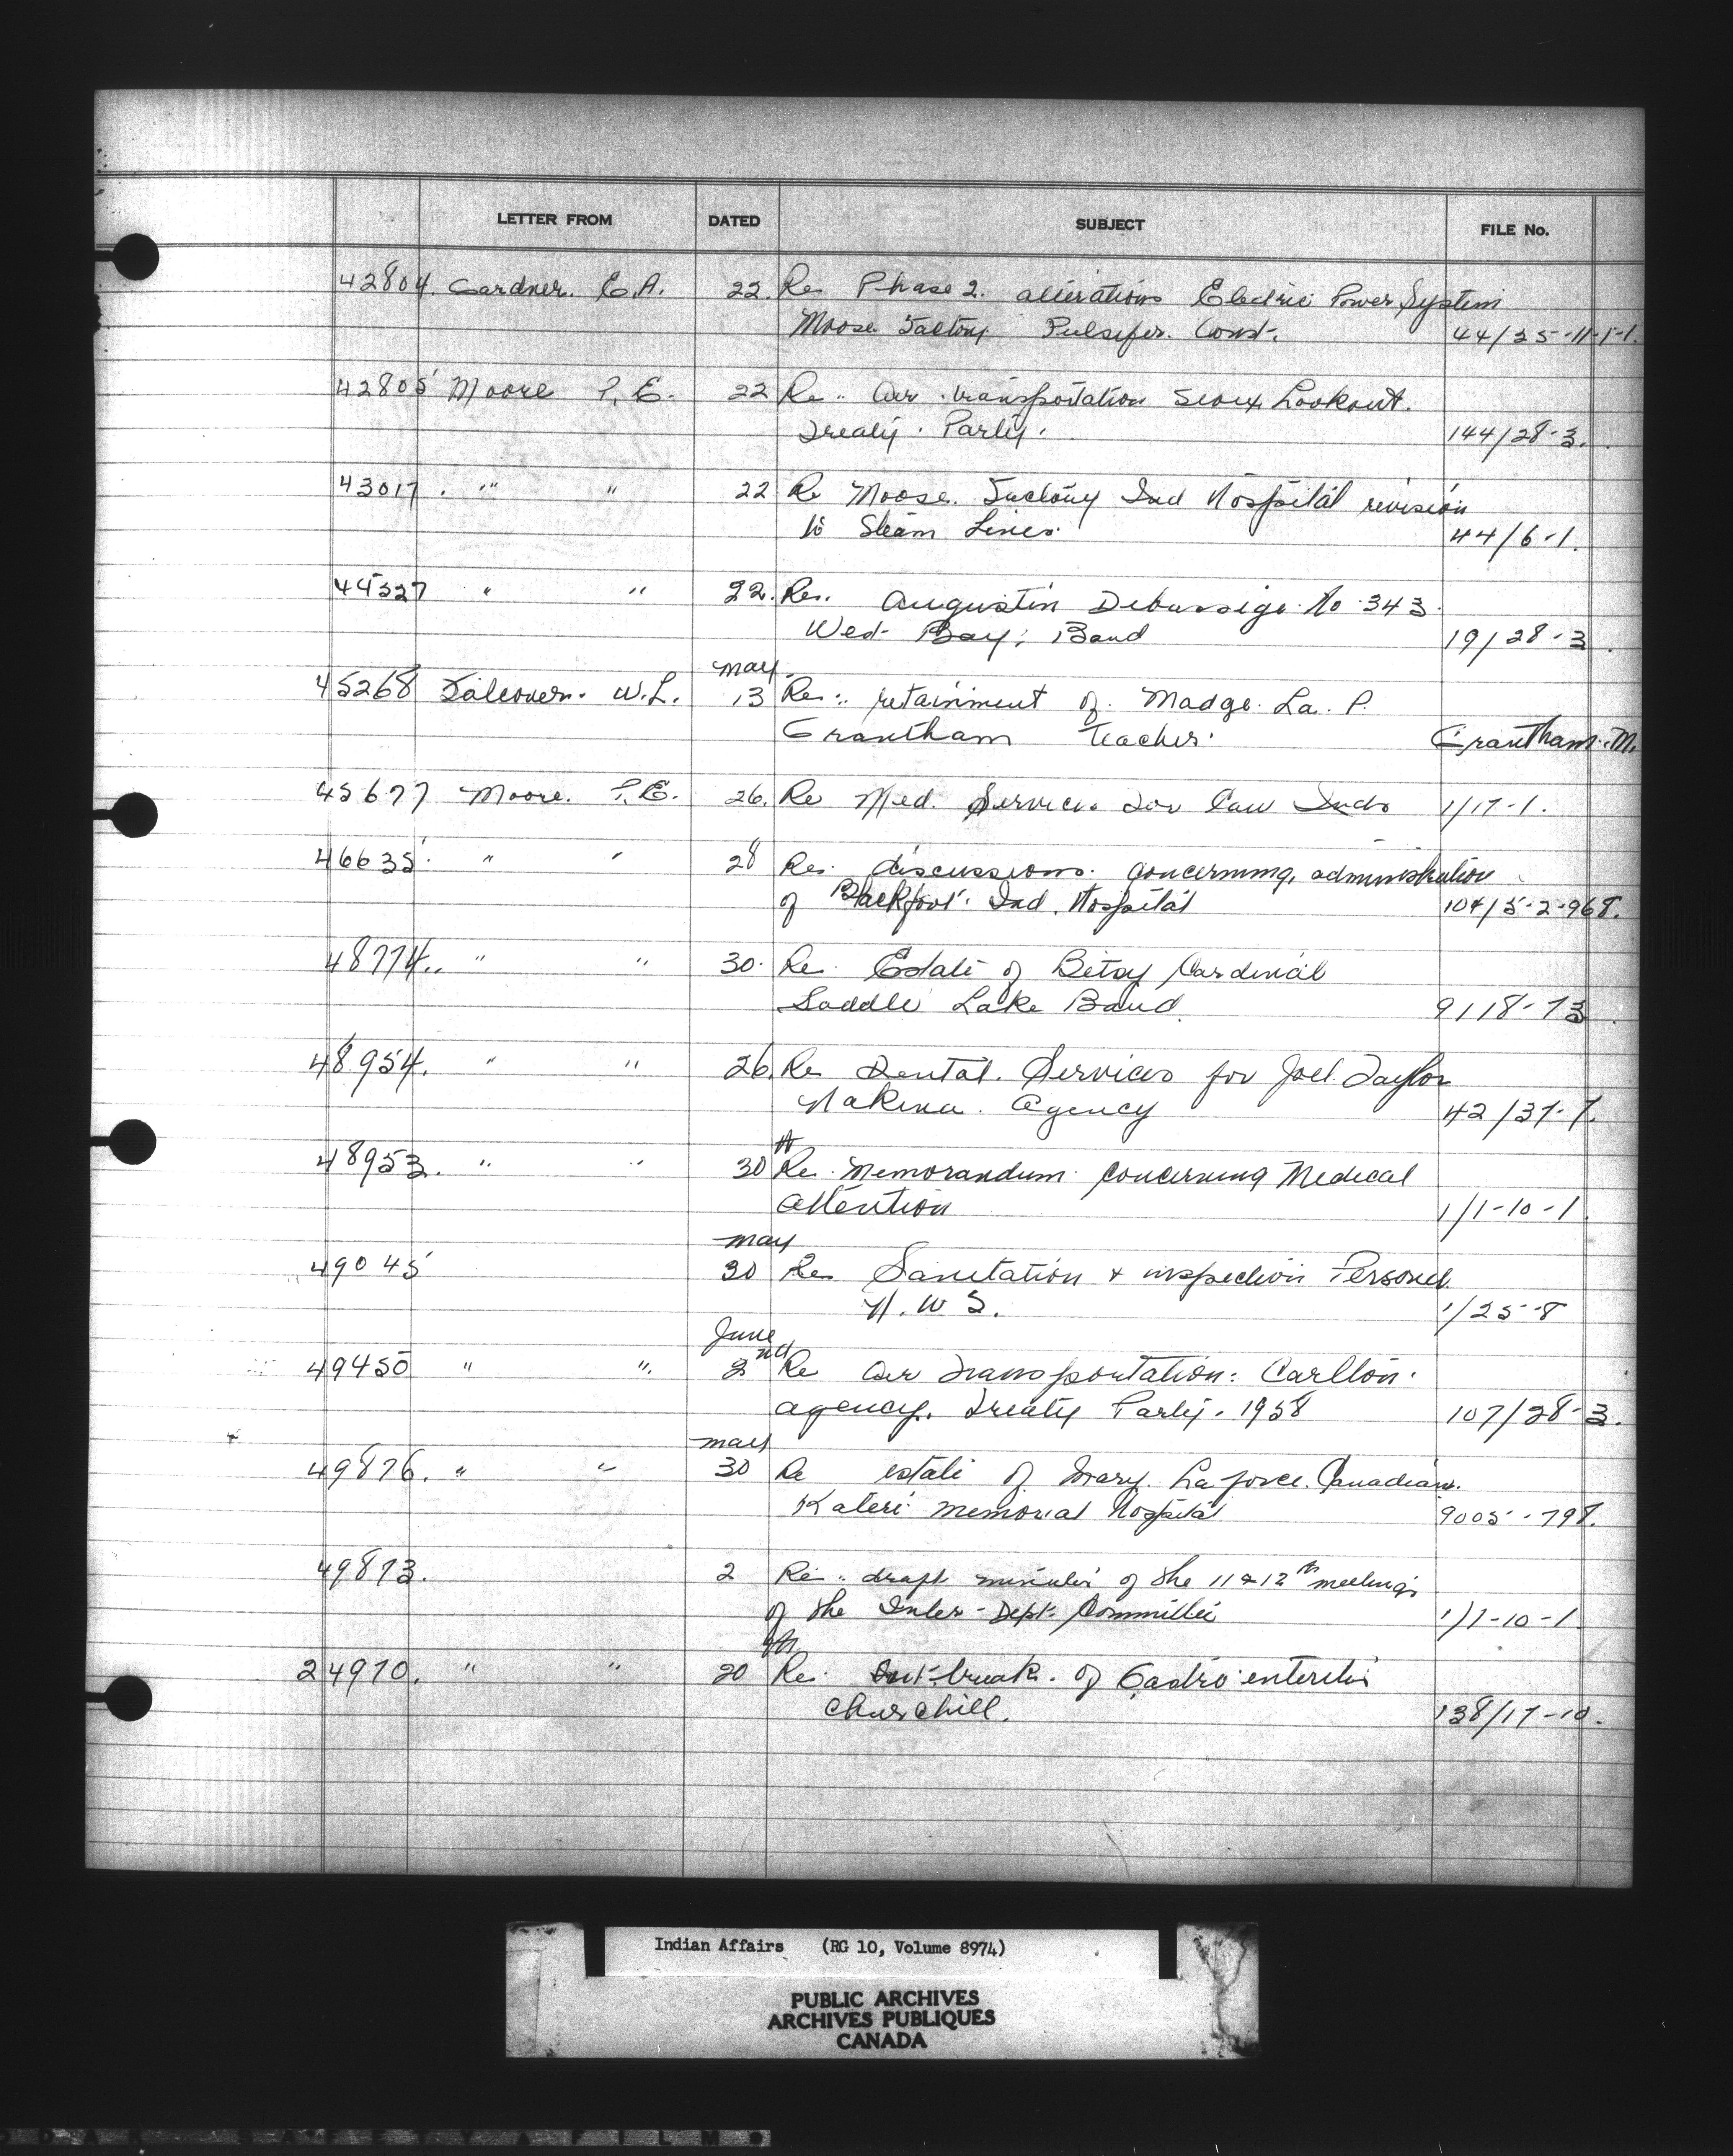 LETTER FROM DATED SUBJECT FILE No.
42804. Gardner. E.A. 22. Re Phase 2. alterations Electric Power System
Moose Factory Pulsifer. Const. 44/25-11-1-1.
42805 Moore P.E. 22 Re.. Air transportation Sioux Lookout.
Treaty. Party. 144/28-3.
43017. " " 22 Re Moose. Factory Ind Hospital revision
to Steam Lines. 44/6-1.
44527 " " 22. Re. Augustin Debassige No 343.
West Bay; Band 19/28-3.
May
45268 Falconer. W.L. 13 Re.. retainment of. Madge. La. P.
Grantham teacher. Grantham. M.
45677 Moore. P.E. 26. Re Med. Services for Can Inds 1/17-1.
46635. " " 28 Re. discussions. concerning, administration
of Blackfoot. Ind. Hospital 104/5-2-968.
48774.. " " 30. Re. Estate of Betsy Cardinal
Saddle Lake Band. 9118-73.
48954. " " 26. Re Dental. Services for Joel. Taylor
Nakina. Agency 42/37-7.
48953. " " 30 th Re. Memorandum. Concerning Medical
attention 1/1-10-1.
May
49045 30 Re Sanitation & inspection Personel.
N.W.S. 1/25-8
June
49450 " ". 2nd Re Air Transportation: Carlton.
agency. Treaty Party. 1958 107/28-3.
May
49876. " " 30 Re estate of Mary. Laforce. Canadian.
Kateri Memorial Hospital 9005-798.
49873. 2 Re.. draft minutes of the 11 & 12th meetings
of the Inter-Dept. Committee 1/1-10-1.
24970. " " 20 th Re. Out-break. of Gastro enteritis
Churchill. 138/17-10.
Indian Affairs (RG 10, Volume 8974)
PUBLIC ARCHIVES
ARCHIVES PUBLIQUES
CANADA